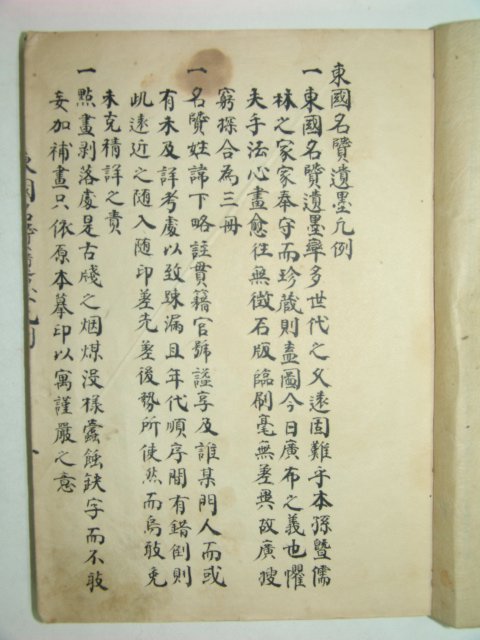 東國名賢遺墨凡例
一東國名賢遺墨率多世代之久遠固難乎本孫曁儒
林之家家奉守而珍蔵則盍圖今日廣布之義也懼
夫手法心畫愈徃無徴石版臨刷毫無差異故廣搜
窮探合為三冊
一名賢姓諱下略註貫籍官號謚享及誰某門人而或
有未及詳考處以致踈漏且年代順序間有錯倒則
此遠近之随入随印差先差後勢所使然而烏敢免
未克精詳之責
一點畫剥落處是古牋之烟煤漫樣蠹蝕鈌字而不敢
妄加補畫只依原本摹印以寓謹嚴之意